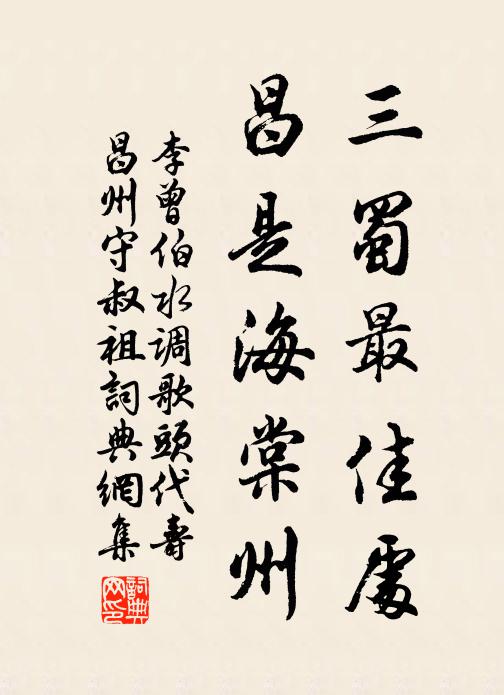 三蜀最佳處
昌是海棠州
李曾伯水调歌頭代壽
昌州守叔祖詞典網集
詞典网印